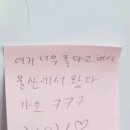 여기 너무 좋다고 해서
울산에서 왔다
가요 ㅋㅋㅋ